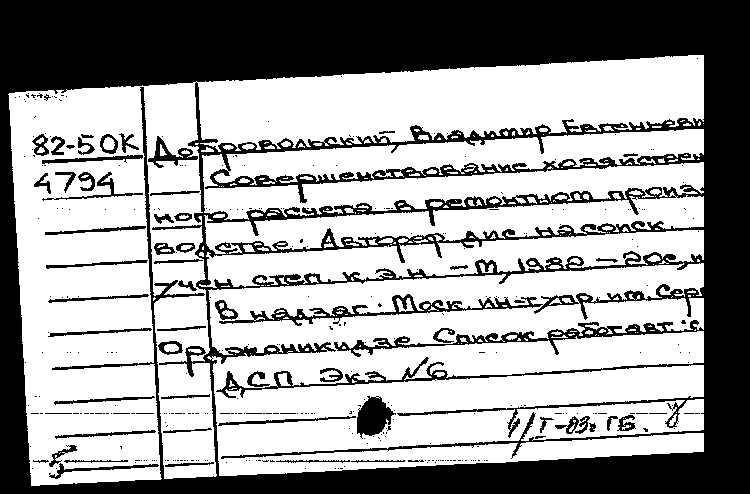 82-5 ОК Добровольский, Владимир Евгеньеви
4794 Совершенствование хозяйствен
ного расчета в ремонтном произ-
водстве: Автореф дис. на соиск.
учен. степ. к. э. н. - М, 1982 - 20с, и
В надзаг: Моск. ин-т упр. им. Серг
Орджоникидзе. Список работ авт: с.
ДСП. Экз №6
4/I-83г ГБ.